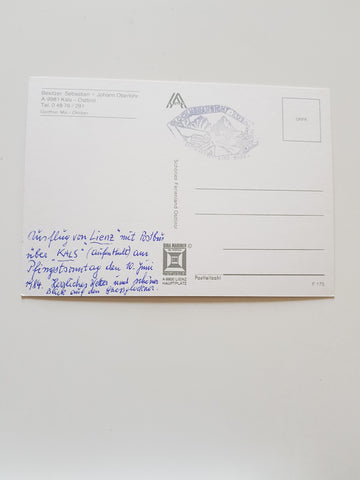 Besitzer: Sebastian - Johann Oberlohr
A 9981 Kals - Osttirol
Tel. 0 48 76 / 281
Geöffnet: Mai - Oktober
Schönes Ferienland Osttirol
A 9900 LIENZ
HAUPTPLATZ
Postleitzahl
F 175
Ausflug von "Lienz" mit Postbus
über "KALS" (Aufenthalt) am
Pfingstsonntag den 10. Juni
1984. Herrliches Wetter und schöner
Blick auf den Grossglockner.